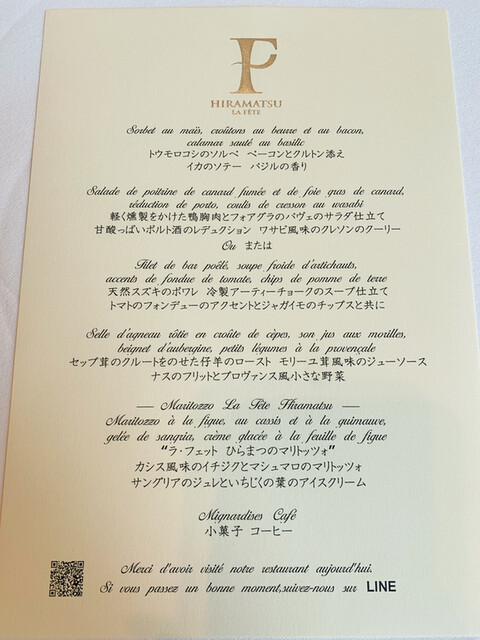 F
HIRAMATSU
LA FÊTE
Sorbet au maïs, croûtons au beurre et au bacon,
calamar sauté au basilic
トウモロコシのソルベ ベーコンとクルトン添え
イカのソテー バジルの香り
Salade de poitrine de canard fumée et de foie gras de canard,
réduction de porto, coulis de cresson au wasabi
軽く燻製をかけた鴨胸肉とフォアグラのパヴェのサラダ仕立て
甘酸っぱいポルト酒のレデュクション ワサビ風味のクレソンのクーリー
Ou または
Filet de bar poêlé, soupe froide d'artichauts,
accents de fondue de tomate, chips de pomme de terre
天然スズキのポワレ 冷製アーティーチョークのスープ仕立て
トマトのフォンデューのアクセントとジャガイモのチップスと共に
Selle d'agneau rôtie en croûte de cèpes, son jus aux morilles,
beignet d'aubergine, petits légumes à la provençale
セップ茸のクルートをのせた仔羊のロースト モリーユ茸風味のジューソース
ナスのフリットとプロヴァンス風小さな野菜
— Maritozzo La Fête Hiramatsu —
Maritozzo à la figue, au cassis et à la guimauve,
gelée de sangria, crème glacée à la feuille de figue
"ラ・フェット ひらまつのマリトッツォ"
カシス風味のイチジクとマシュマロのマリトッツォ
サングリアのジュレといちじくの葉のアイスクリーム
Mignardises Café
小菓子 コーヒー
Merci d'avoir visité notre restaurant aujourd'hui.
Si vous passez un bonne moment,suivez-nous sur LINE